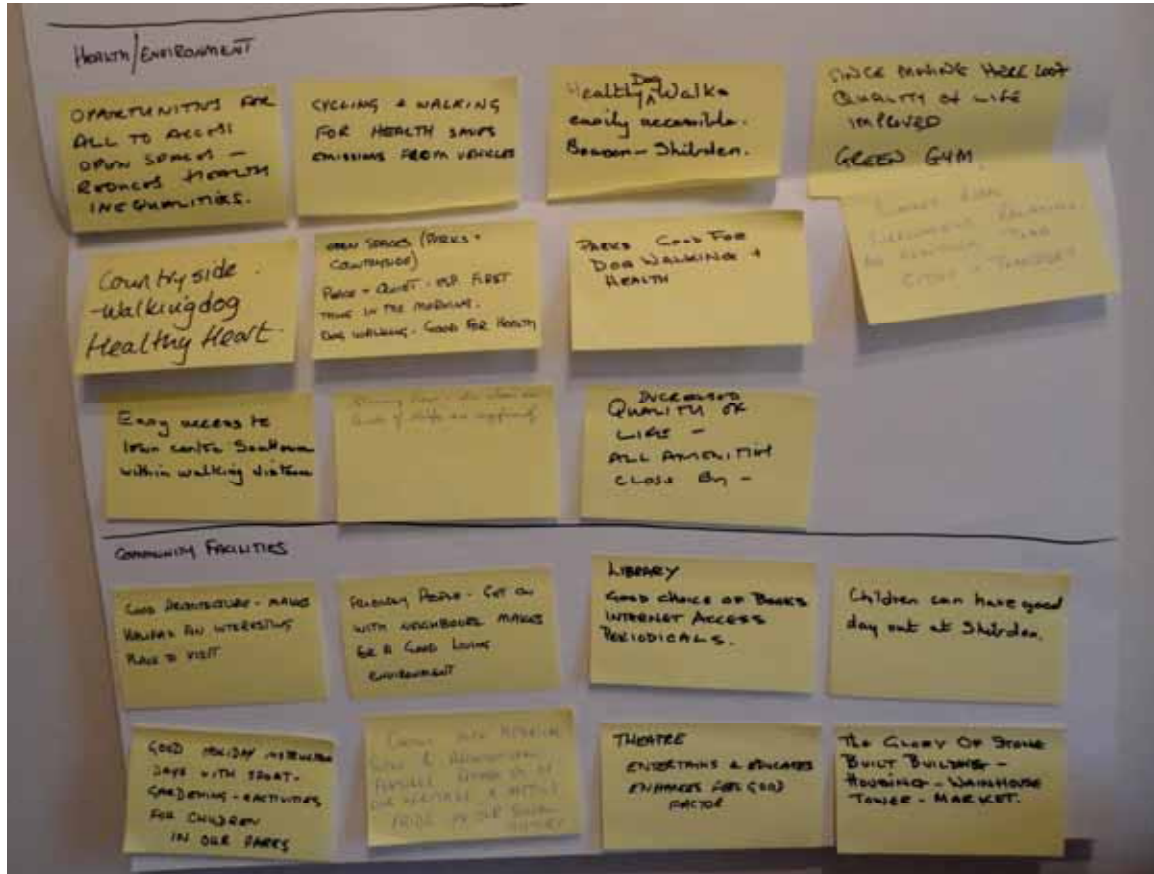 HEALTH/ENVIRONMENT
OPARTUNITIES FOR
ALL TO ACCESS
OPEN SPACES -
REDUCES HEALTH
INEQUALITIES.
CYCLING & WALKING
FOR HEALTH SAVES
EMISSIONS FROM VEHICLES
Healthy Dog Walks
easily accessible.
Beacon - Shibden.
SINCE MOVING HERE 2007
QUALITY OF LIFE
IMPROVED
GREEN GYM.
Countryside.
-Walking dog
Healthy Heart.
OPEN SPACES (PARKS +
COUNTRYSIDE)
PEACE + QUIET - ESP FIRST
THING IN THE MORNING.
DOG WALKING - GOOD FOR HEALTH
PARKS GOOD FOR
DOG WALKING +
HEALTH
Easy access to
town centre Southowram
within walking distance
INCREASED
QUALITY OF
LIFE -
ALL AMENITIES
CLOSE BY -
COMMUNITY FACILITIES
GOOD ARCHITECTURE - MAKES
HALIFAX AN INTERESTING
PLACE TO VISIT
FRIENDLY PEOPLE - GET ON
WITH NEIGHBOURS MAKES
FOR A GOOD LIVING
ENVIRONMENT
LIBRARY
GOOD CHOICE OF BOOKS
INTERNET ACCESS
PERIODICALS.
Children can have good
day out at Shibden.
GOOD HOLIDAY INSTRUCTION
DAYS WITH SPORT -
GARDENING - ACTIVITIES
FOR CHILDREN
IN OUR PARKS
OUR HERITAGE &
PRIDE IN OUR
THEATRE
ENTERTAINS & EDUCATES
ENHANCES FEEL GOOD
FACTOR
The GLORY OF STONE
BUILT BUILDING -
HOUSING - WAINHOUSE
TOWER - MARKET.